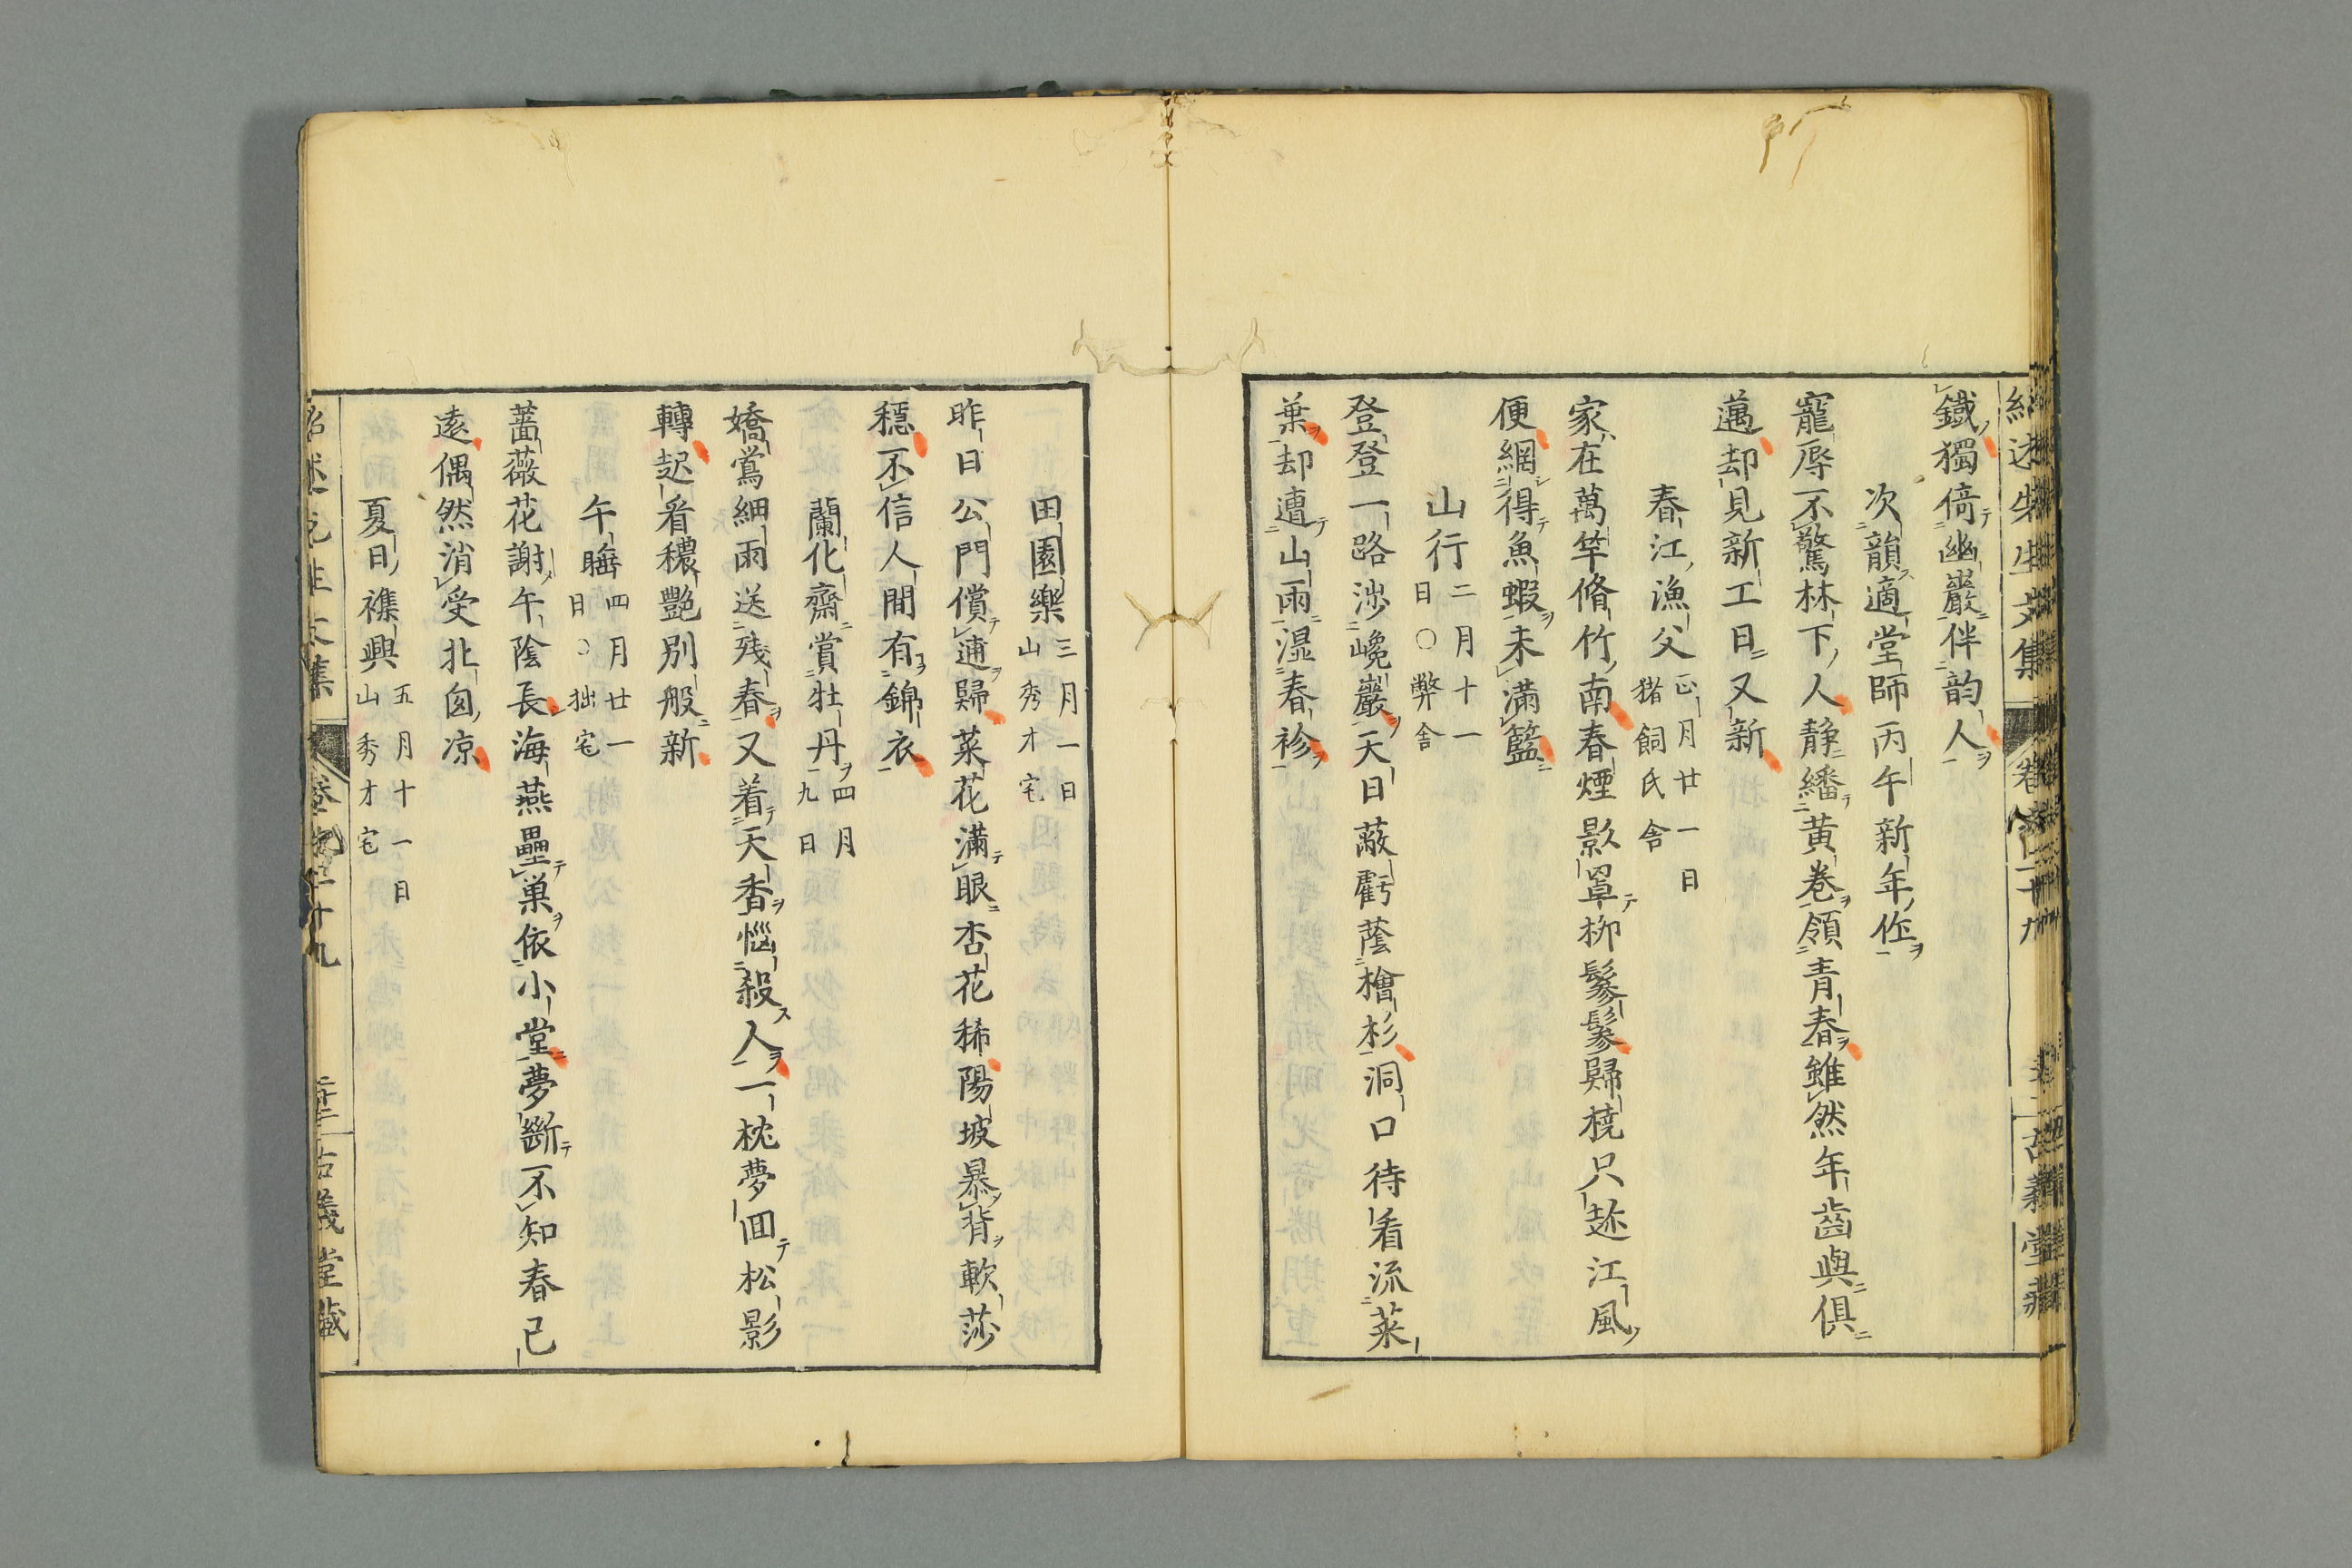 鐵獨倚幽巖伴韵人
次韻適堂師丙午新年作
寵辱不驚林下人靜繙黃卷領青春雖然年齒與俱
邁却見新工日又新
春江漁父正月廿一日猪飼氏舍
家在萬竿脩竹南春煙影罩柳鬖鬖歸橈只趂江風
便網得魚蝦未滿籃
山行二月十一日〇弊舍
登登一路涉巉巖天日蔽虧蔭檜杉洞口待看流菜
葉却遭山雨濕春衫
田園樂三月一日山秀才宅
昨日公門償逋歸菜花滿眼杏花稀陽坡暴背軟莎
穩不信人間有錦衣
蘭化齋賞牡丹四月九日
嬌鶯細雨送残春又着天香惱殺人一枕夢回松影
轉起看穠艷別般新
午睡四月廿一日〇拙宅
薔薇花謝午陰長海燕壘巢依小堂夢斷不知春已
遠偶然消受北囱凉
夏日襍興五月十一日山秀才宅
紹述先生文集 卷 二十九 古義堂藏